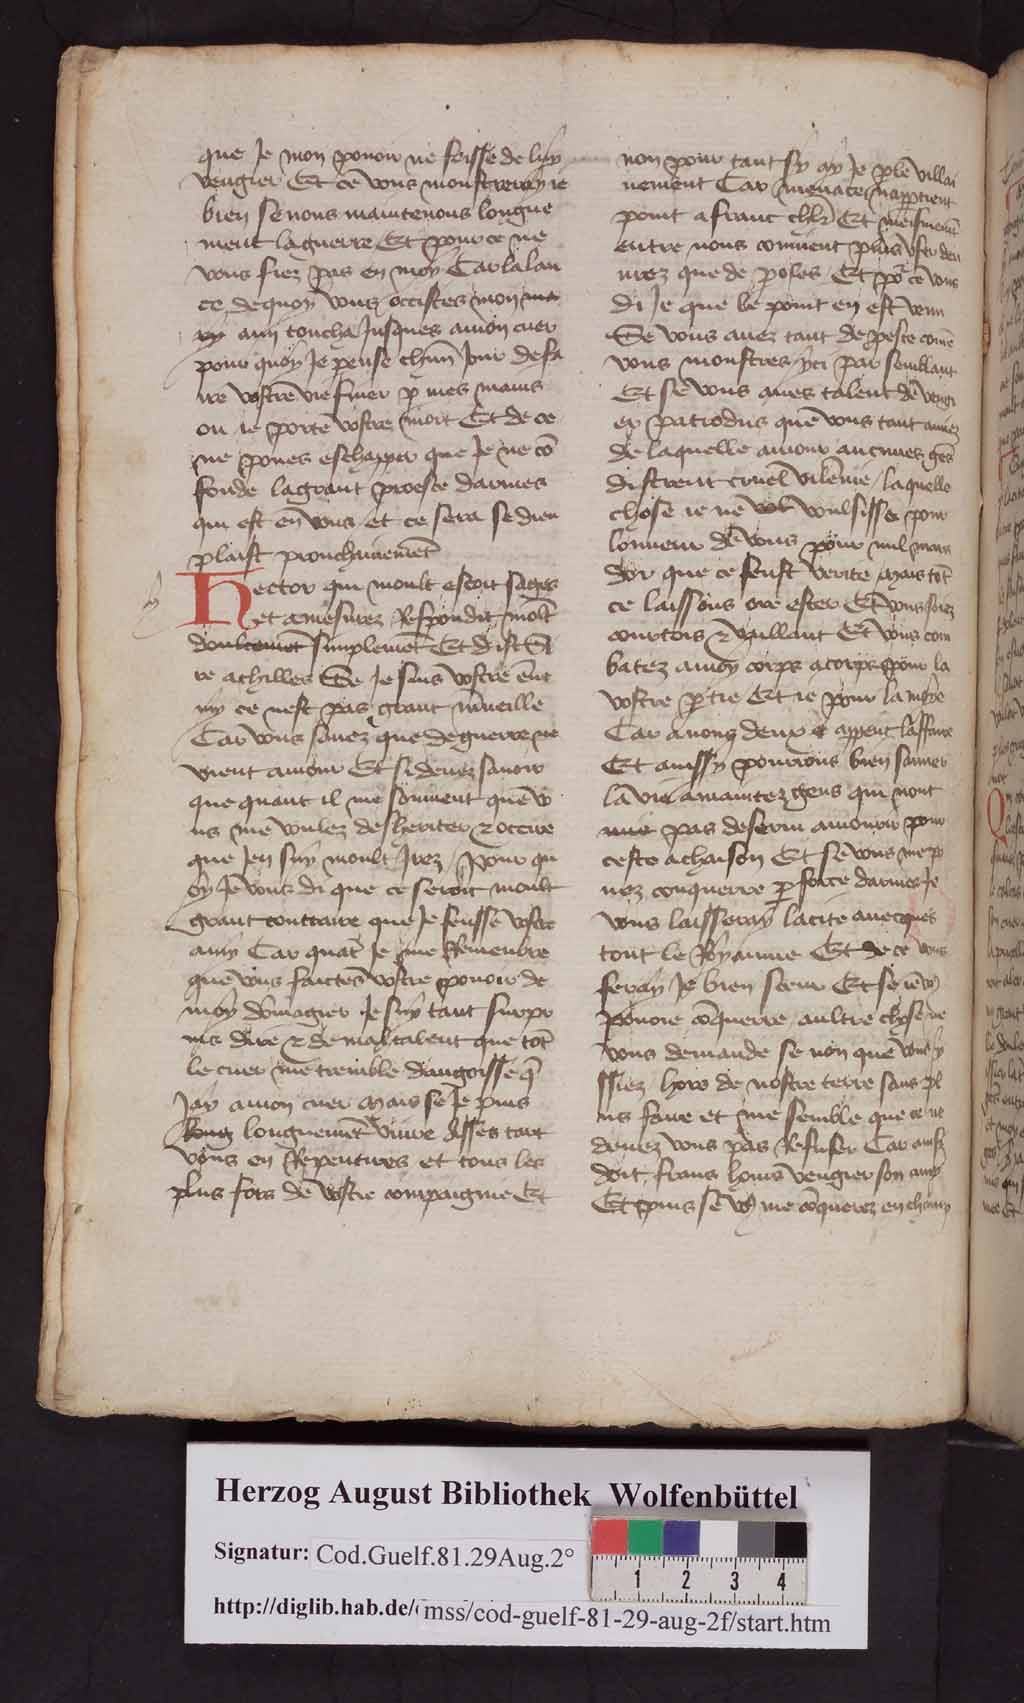 que Je mon pouoir ne feisse de luy
vengier Et ce vous monstreray ie
bien se nous maintenons longue
ment la guerre Et pour ce ne
vous fiez pas en moy Car la lan
ce de quoy vous occistes mon
amy toucha Jusques a mon cuer
pour quoy Je pense chun Jour de fa
ire vostre vie finer p mes mains
ou ie porte vostre mort Et de ce
ne poues eschapper que Je ne co
fonde la grant proesce darmes
qui est en vous et ce sera se dieu
plaist prouchainemet
Hector qui moult estoit sages
et amesurez Respondit molt
doulcemet simplemet Et dist Si
re achilles Se Je suis vostre ene
my ce nest pas grant mueille
Car vous sauez que de guerre ne
vient amour Et si deuez sauoir
que quant il me souuient que v
us me voulez desheriter et occire
que Jen suy moult Jrez Pour qu
oy Je vous di que ce seroit moult
grant contraire que Je feusse vostre
amy Car quat Je me Remenbre
que vous faictes vostre pouoir de
moy domagier Je suy tant surpr
ins dire et de maltalent que tot
le cuer me tremble dangoisse q
Jay a mon cuer Mais se Je puis
longuemet viure Asses tart
vous en Repentires et tous les
plus fors de vostre compaignie Et
non pour tant sy ay Je ple villai
nement Car menace nappertient
point a franc chlr Et meismemt
entre nous conuient plus vser deu
urez que de proles Et po ce vous
di Je que le point en est venu
Se vous auez tant de peste come
vous monstres yci par semblant
Et se vous aues talent de vengi
er patrodus que vous tant amiez
de laquelle amour aucunes ges
distrent cruel vilenie laquelle
chose ie ne voulsisse pour
lonneur de vous pour mil mars
dor que ce feust verite Mais tot
ce laissons ore ester Et vous soiez
courtois et vaillant Et vous com
batez a moy corps a corps pour la
vostre ptie Et ie pour la nostre
Car a nous deux appent laffaire
Et aussy pourrons bien sauuer
la vie a maintez gens qui nont
pas deserui a mourir pour
ceste achaison Et se vous me po
uez conquerre p force darmes Je
vous laisseray la cite auecques
tout le Royaume Et de ce vous
feray Je bien seeur Et se ie vo
pouoie coquerre aultre chose ne
vous demande se non que vous y
ssiez hors de nostre terre sans pl
us faire et me semble que ce ne
deuez vous pas Refuser Car ainsy
doit frans homs vengier son amy
Et puis se vo me coquerez en champ
Herzog August Bibliothek Wolfenbüttel
Signatur: Cod.Guelf.81.29Aug.2°
http://diglib.hab.de/mss/cod-guelf-81-29-aug-2f/start.htm
1 2 3 4